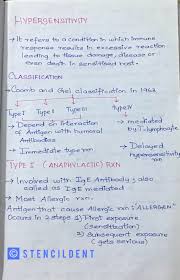 HYPERSENSITIVITY
→ It refers to a condition in which immune
response results in excessive reaction
leading to tissue damage, disease or
even death in sensitised host.
CLASSIFICATION
→ Coomb and Gel classification in 1963
Type I Type II Type III Type IV
→ Depend on interaction
of Antigen with humoral
Antibodies
→ Immediate type rxn
→ mediated
by T-lymphocyte
→ Delayed
hypersensitivity
rxn
TYPE I (ANAPHYLACTIC) RXN
→ Involved with IgE Antibody; also
called as IgE mediated
→ Most Allergic rxn.
Antigen that cause Allergic rxn: "ALLERGEN"
Occurs in 2 steps 1) First exposure
(sensitisation)
2) Subsequent exposure
(gets serious)
STENCILDENT